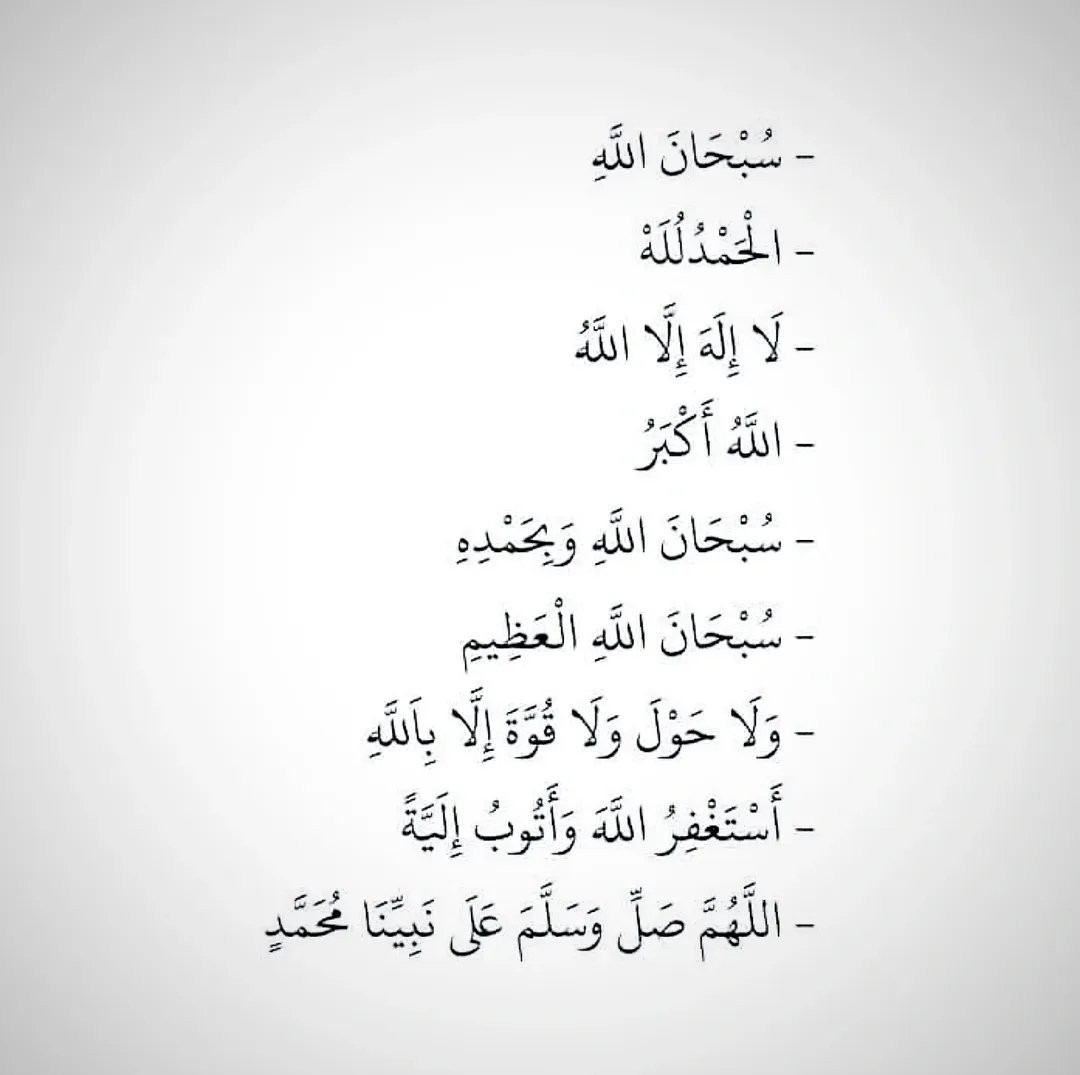 - سُبْحَانَ اللَّهِ
- الْحَمْدُلُلَهْ
- لَا إِلَهَ إِلَّا اللَّهُ
- اللَّهُ أَكْبَرُ
- سُبْحَانَ اللَّهِ وَبِحَمْدِهِ
- سُبْحَانَ اللَّهِ الْعَظِيمِ
- وَلَا حَوْلَ وَلَا قُوَّةَ إِلَّا بِاَللَّهِ
- أَسْتَغْفِرُ اللَّهَ وَأَتُوبُ إِلَيَّةً
- اللَّهُمَّ صَلِّ وَسَلَّمَ عَلَى نَبِيِّنَا مُحَمَّدٍ